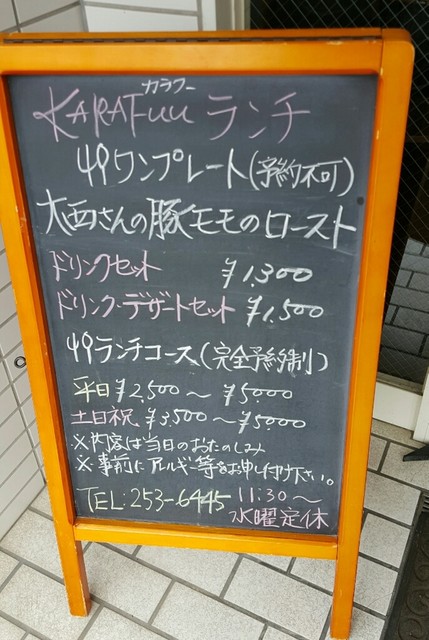 カラフー
KARAFuu ランチ
49ワンプレート(予約不可)
大西さんの豚モモのロースト
ドリンクセット ¥1,300
ドリンク・デザートセット ¥1,500
49ランチコース(完全予約制)
平日 ¥2,500〜¥5000
土日祝 ¥3,500〜¥5000
※内容は当日のおたのしみ
※事前にアレルギー等をお申し付け下さい。
TEL:253-6445 11:30〜
水曜定休